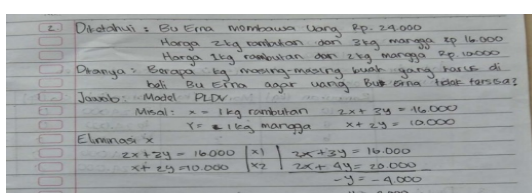 2. Diketahui : Bu Erna membawa Uang Rp. 24.000
Harga 2kg rambutan dan 3kg mangga Rp 16.000
Harga 1kg rambutan dan 2kg mangga Rp. 10.000
Ditanya : Berapa kg masing-masing buah yang harus di
beli Bu Erna agar uang Bu Erna tidak tersisa?
Jawab : Model PLDV
Misal : x = 1kg rambutan 2x + 3y = 16.000
Y = 1kg mangga x + 2y = 10.000
Eliminasi x
2x + 3y = 16.000 |x1| 2x + 3y = 16.000
x + 2y = 10.000 |x2| 2x + 4y = 20.000
-y = -4.000